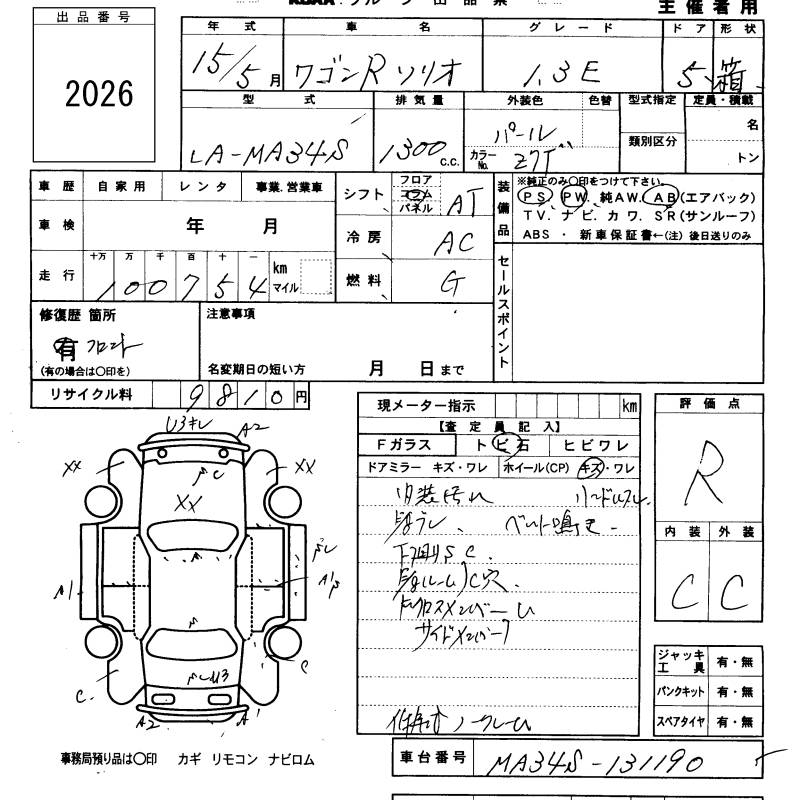 主催者用
出品番号
2026
年式 車名 グレード ドア 形状
15/5月 ワゴンRソリオ 1.3E 5 箱
型式 排気量 外装色 色替 型式指定 定員・積載
LA-MA34S 1300c.c. パール
カラーNo. Z7T
類別区分
名
トン
車歴 自家用 レンタ 事業.営業車
車検 年 月
走行 十万 万 千 百 十 一
100754 km マイル
シフト フロア コラム パネル AT
冷房 AC
燃料 G
装備品
※純正のみ○印をつけて下さい。
PS. PW. 純AW. AB(エアバック)
TV. ナビ. カワ. SR(サンルーフ)
ABS ・ 新車保証書←(注)後日送りのみ
セールスポイント
修復歴 箇所
有 フロント
(有の場合は○印を)
注意事項
名変期日の短い方 月 日まで
リサイクル料 9810円
現メーター指示 km
【査定員記入】
Fガラス トビ石 ヒビワレ
ドアミラー キズ・ワレ ホイール(CP) キズ・ワレ
内装汚れ
ベルト鳴き
下廻りSC.
C穴.
サイドメンバー
評価点
R
内装 外装
C C
ジャッキ工具 有・無
パンクキット 有・無
スペアタイヤ 有・無
U3キレ A2
XX XX
C
XX
A1
C. C
A2 A1
事務局預り品は○印 カギ リモコン ナビロム
車台番号 MA34S-131190